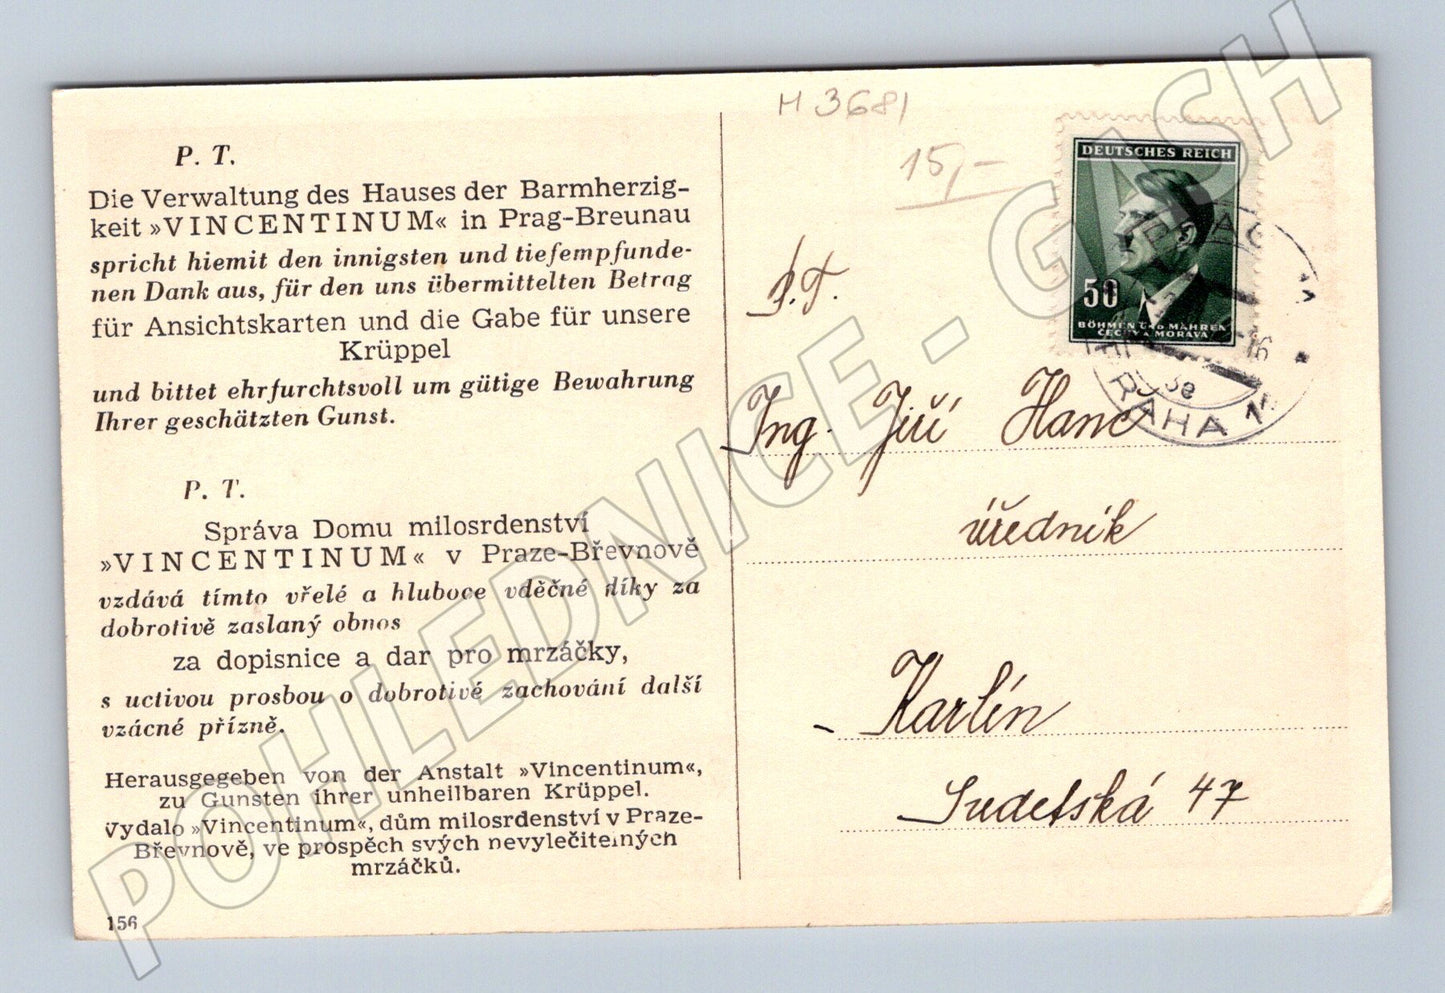 P. T.
Die Verwaltung des Hauses der Barmherzig-
keit »VINCENTINUM« in Prag-Breunau
spricht hiemit den innigsten und tiefempfunde-
nen Dank aus, für den uns übermittelten Betrag
für Ansichtskarten und die Gabe für unsere
Krüppel
und bittet ehrfurchtsvoll um gütige Bewahrung
Ihrer geschätzten Gunst.
P. T.
Správa Domu milosrdenství
»VINCENTINUM« v Praze-Břevnově
vzdává tímto vřelé a hluboce vděčné díky za
dobrotivě zaslaný obnos
za dopisnice a dar pro mrzáčky,
s uctivou prosbou o dobrotivé zachování další
vzácné přízně.
Herausgegeben von der Anstalt »Vincentinum«,
zu Gunsten ihrer unheilbaren Krüppel.
Vydalo »Vincentinum«, dům milosrdenství v Praze-
Břevnově, ve prospěch svých nevyléčitelných
mrzáčků.
156
H 3681
15,-
DEUTSCHES REICH
50
BÖHMEN UND MÄHREN
ČECHY A MORAVA
PRAHA 1
P.T.
Ing. Jiří Hanc
úředník
Karlín
Sudetská 47
POHLEDNICE - GASH